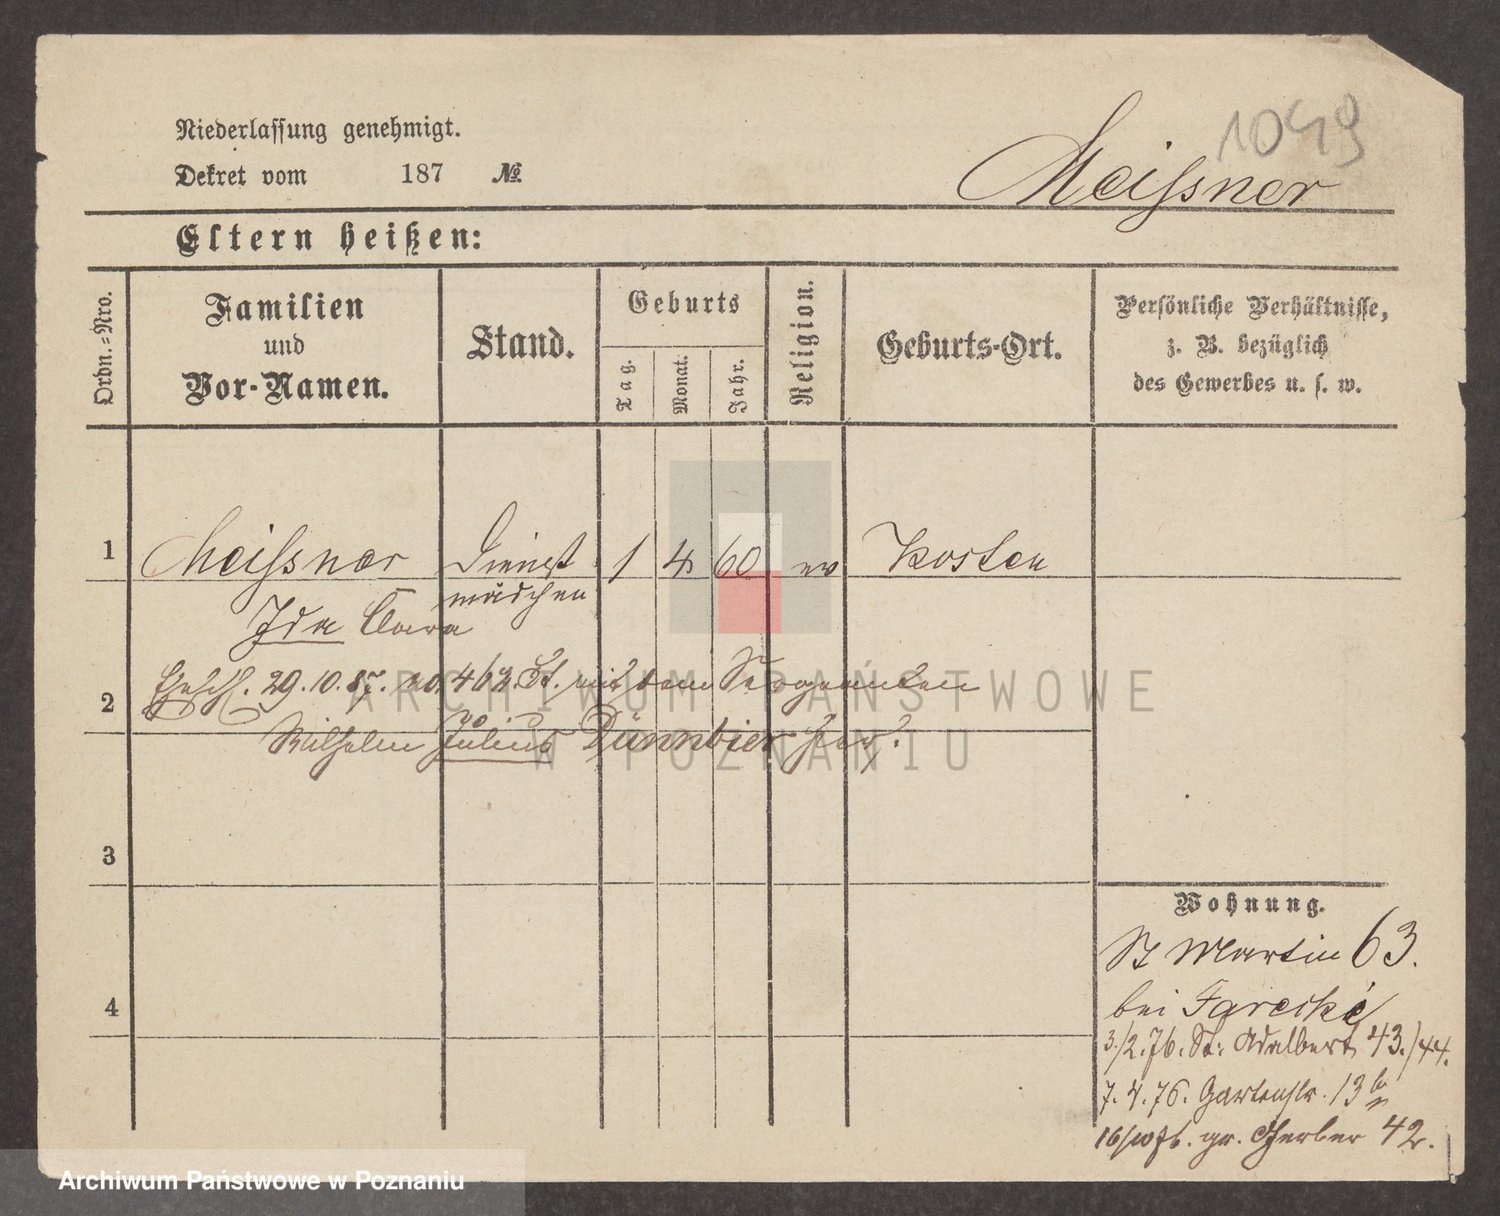 1049
Niederlassung genehmigt.
Dekret vom 187 №
Meissner
Eltern heißen:
Ordn.=Nro.
Familien
und
Vor-Namen.
Stand.
Geburts
Tag.
Monat.
Jahr.
Religion.
Geburts-Ort.
Persönliche Verhältnisse,
z. B. bezüglich
des Gewerbes u. s. w.
1 Meissner Dienst 1 4 60 ev Kosten
mädchen
Ida Clara
2 Ehesch. 29.10.87. No. 462. St. mit dem Sergeanten
Wilhelm Julius Dünnbier hier.
3
4
Wohnung.
St Martin 63.
bei
3./2.76. St: Adalbert 43./44.
7.4.76. Gartenstr. 13
16/10 76. gr. Gerber 42.
ARCHIWUM PAŃSTWOWE
W POZNANIU
Archiwum Państwowe w Poznaniu